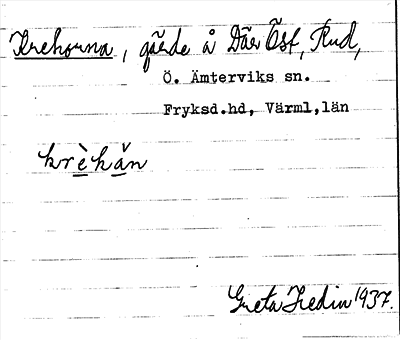 Krehorna, gärde å Där Öst, Rud,
Ö. Ämterviks sn.
Fryksd.hd, Värml,län
krèhǎn
Greta Hedin 1937.